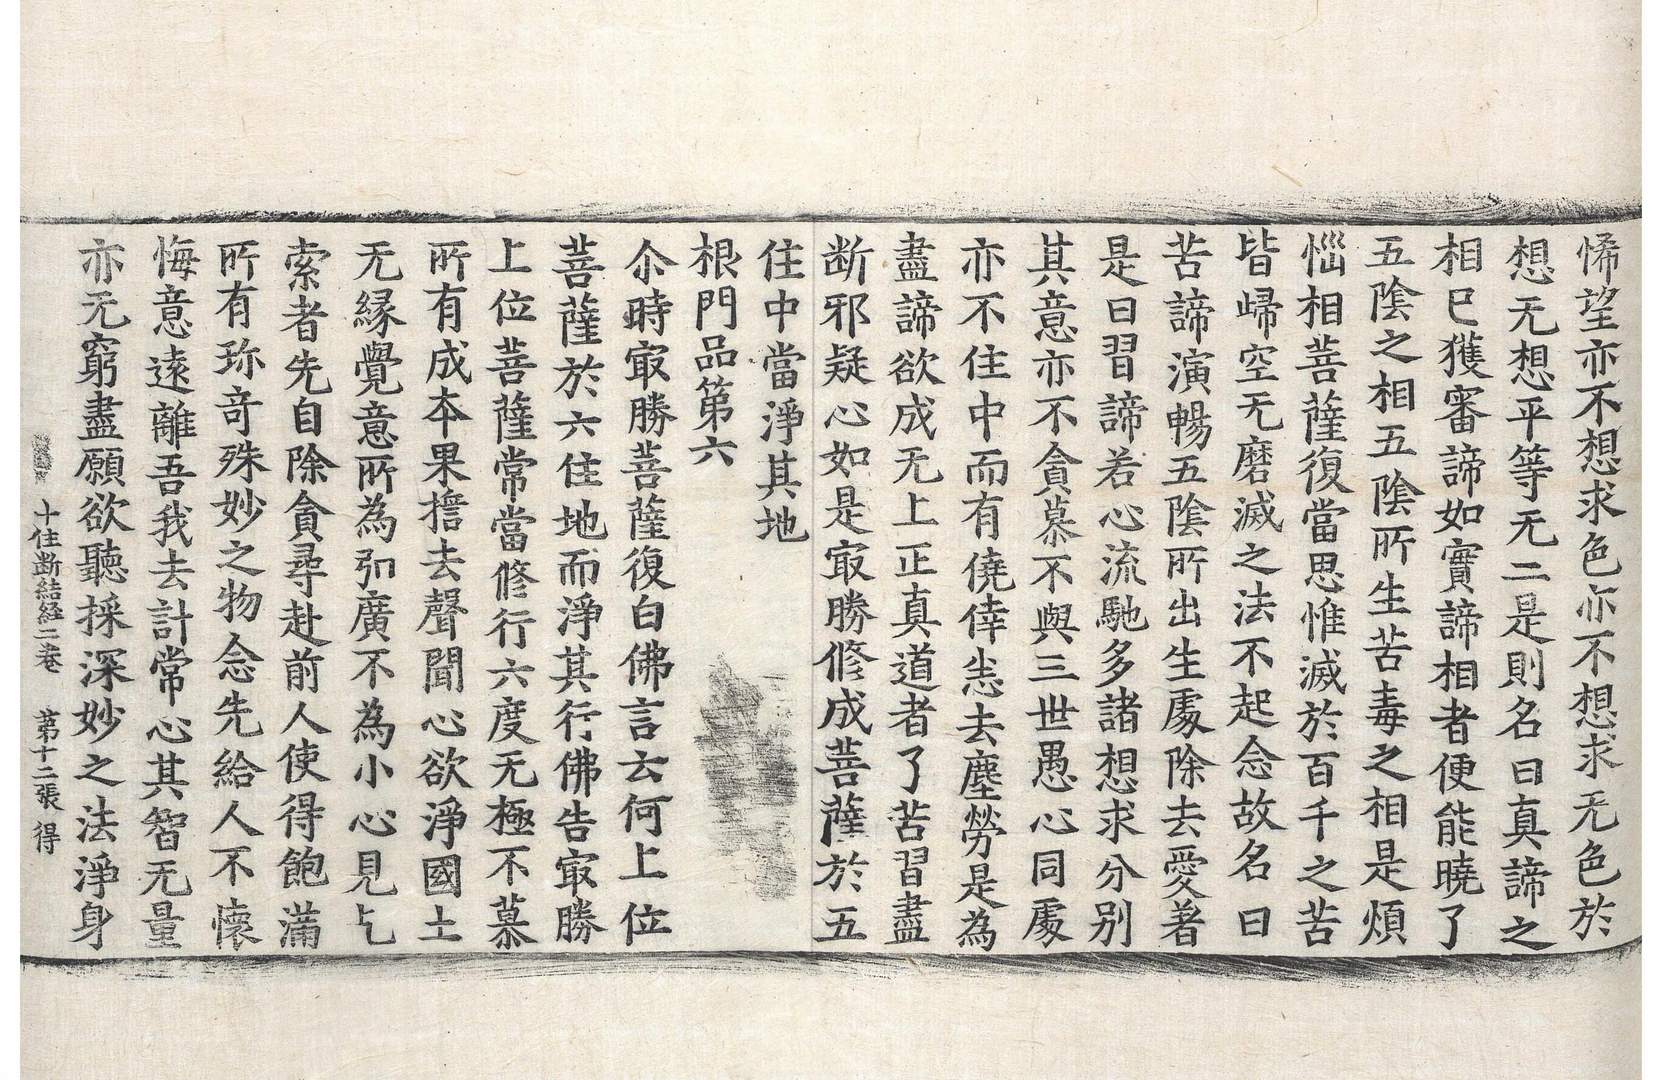 悕望亦不想求色亦不想求无色於
想无想平等无二是則名曰真諦之
相已獲審諦如實諦相者便能曉了
五陰之相五陰所生苦毒之相是煩
惱相菩薩復當思惟滅於百千之苦
皆歸空无磨滅之法不起念故名曰
苦諦演暢五陰所出生處除去愛著
是曰習諦若心流馳多諸想求分別
其意亦不貪慕不與三世愚心同處
亦不住中而有僥倖恚去塵勞是為
盡諦欲成无上正真道者了苦習盡
断邪疑心如是㝡勝修成菩薩於五
住中當淨其地
根門品第六
尒時㝡勝菩薩復白佛言云何上位
菩薩於六住地而淨其行佛告㝡勝
上位菩薩常當修行六度无極不慕
所有成夲果擔去聲聞心欲淨國土
无緣覺意所為弘廣不為小心見乞
索者先自除貪尋赴前人使得飽滿
所有珎竒殊妙之物念先給人不懷
悔意遠離吾我去計常心其智无量
亦无窮盡願欲聽採深妙之法淨身
十住断結経二卷 第十二張 得